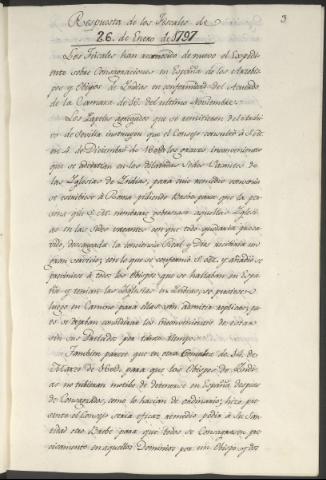 3
Respuesta de los Fiscales de
26. de Enero de 1797
Los Fiscales han reconocido de nuevo el Expedi-
ente sobre Consagraciones en España de los Arzobis-
pos y Obispos de Yndias en conformidad del Acuerdo
de la Camara de 16. del ultimo Noviembre.
Los Papeles agregados que se remitieron del Archivo
de Sevilla instruyen que el Consejo consultó a S.M.
en 4. de Diciembre de los graves inconvenientes
que se advertian en las dilatadas Sedes Vacantes de
las Yglesias de Yndias, para cuio remedio convenia
se escribiese á Roma pidiendo Breve para que la per-
sona que S.M. nombrase governase aquellas Yglesi-
as en las Sedes vacantes con que todo quedaria quie-
tado, descargada la conciencia Real, y Dios recibiria un
gran servicio; con lo que se conformó S.M. y añadió se
previniese á todos los Obispos que se hallaban en Espa-
ña y tenian las Yglesias en Yndias, se pusiesen
luego en Camino para ellas sin admitir replica; pu-
es se dejaban considerar los inconvenientes de estar
sin sus Prelados por tanto tiempo.
Tambien parece que en otra Consulta de 14. de
Marzo de para que los Obispos de Yndi-
as no tubiesen motibo de detenerse en España, despues
de Consagrados, como lo hacian de ordinario; hizo pre-
sente el Consejo seria eficaz remedio pedir á Su San-
tidad otro Breve para que todos se Consagrasen pre-
cisamente en aquellos Dominios por un Obispo, y dos